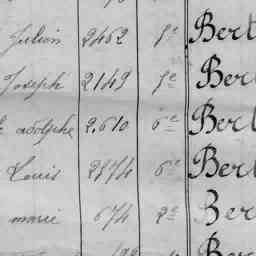 Julien 2462 8e Bert
Joseph 2149 8e Bert
adolphe 2.610 6e Bert
Louis 2974 6e Bert
marie 674 2e Ber